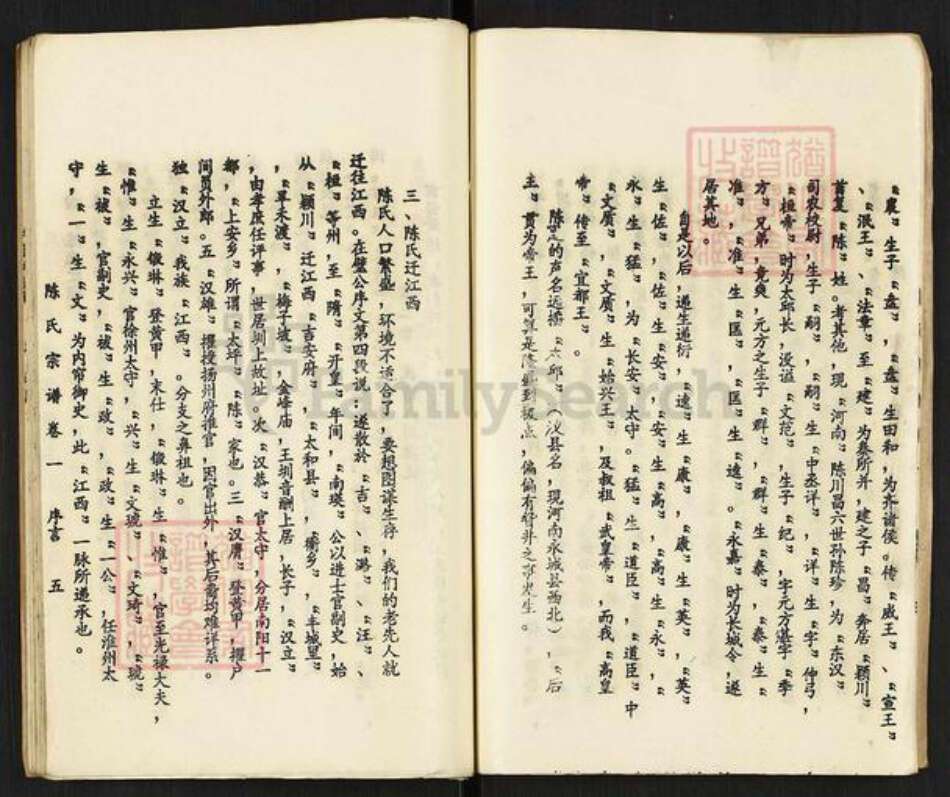 “襄”生子“盘”，“盘”生田和，为齐诸侯。传“威王”、“宣王”
、“湣王”、“法章”至“建”为秦所并，建之子“昌”奔居“颖川”
首复“陈”姓。考其他，现“河南”陈川昌六世孙陈珍，为“东汉”
司农校尉，生子“嗣”，“嗣”生“中丞详”，“详”生“字”仲弓，
“桓帝”时为太邱长，没谥“文范”，生子“纪”，字元方湛字“季
方”兄弟，竟爽，元方之生子“群”，“群”生“泰”，“泰”生“
准”，“准”生“匡”，“匡”生“逵”。“永嘉”时为长城令，遂
居其地。
自是以后，递生递衍，“逵”生“康”，“康”生“英”，“英”
生“佐”，“佐”生“安”，“安”生“高”，“高”生“永”，“
永”生“猛”，为“长安”太守。“猛”生“道臣”，“道臣”中
“文质”，“文质”生“始兴王”，及叔祖“武皇帝”，而我“高皇
帝”传至“宜都王”。
陈的声名远播，太邱”（汉县名，现河南永城县西北），“后
主”贯为帝王，可算是陈盛到极点，偏偏有
三、陈氏迁江西
陈氏人口繁盛，环境不适合了，要想图谋生存，我们的老先人就
迁往江西。在璧公序文第四段说：遂散于“吉”、“潞”、“汪”、
“桓”等州，至“隋”“开皇”年间，“南瑛”公以进士官副史，始
从“颖川”迁江西“吉安府”，“太和县”，“榆乡”，“丰城里”
，“早禾渡”，“梅子坡”，金峰庙，王圳音酬上居，长子，“汉立”
，由孝庶任评事，世居圳上故址。次“汉恭”官太守，分居南阳十一
都，“上安乡”所谓“太坪”“陈”家也。三“汉膺”登黄甲，擢户
间员外郎。五“汉雄”擢授扬州府推官，因官出外，其后裔均难详系。
独“汉立”我族“江西”。分支之鼻祖也。
立生“镦琳”登黄甲，末仕，“镦琳”生“惟”，官至光禄大夫，
“惟”生“永兴”官徐州太守，“兴”生“文琥”、“文琦”，“琥”
生“祓”，官副史，“祓”生“政”，“政”生“一公”，任淮州太
守，“一”生“文”为内帘御史，此“江西”一脉所递承也。
陈氏宗谱卷一 序言 五
FamilySearch